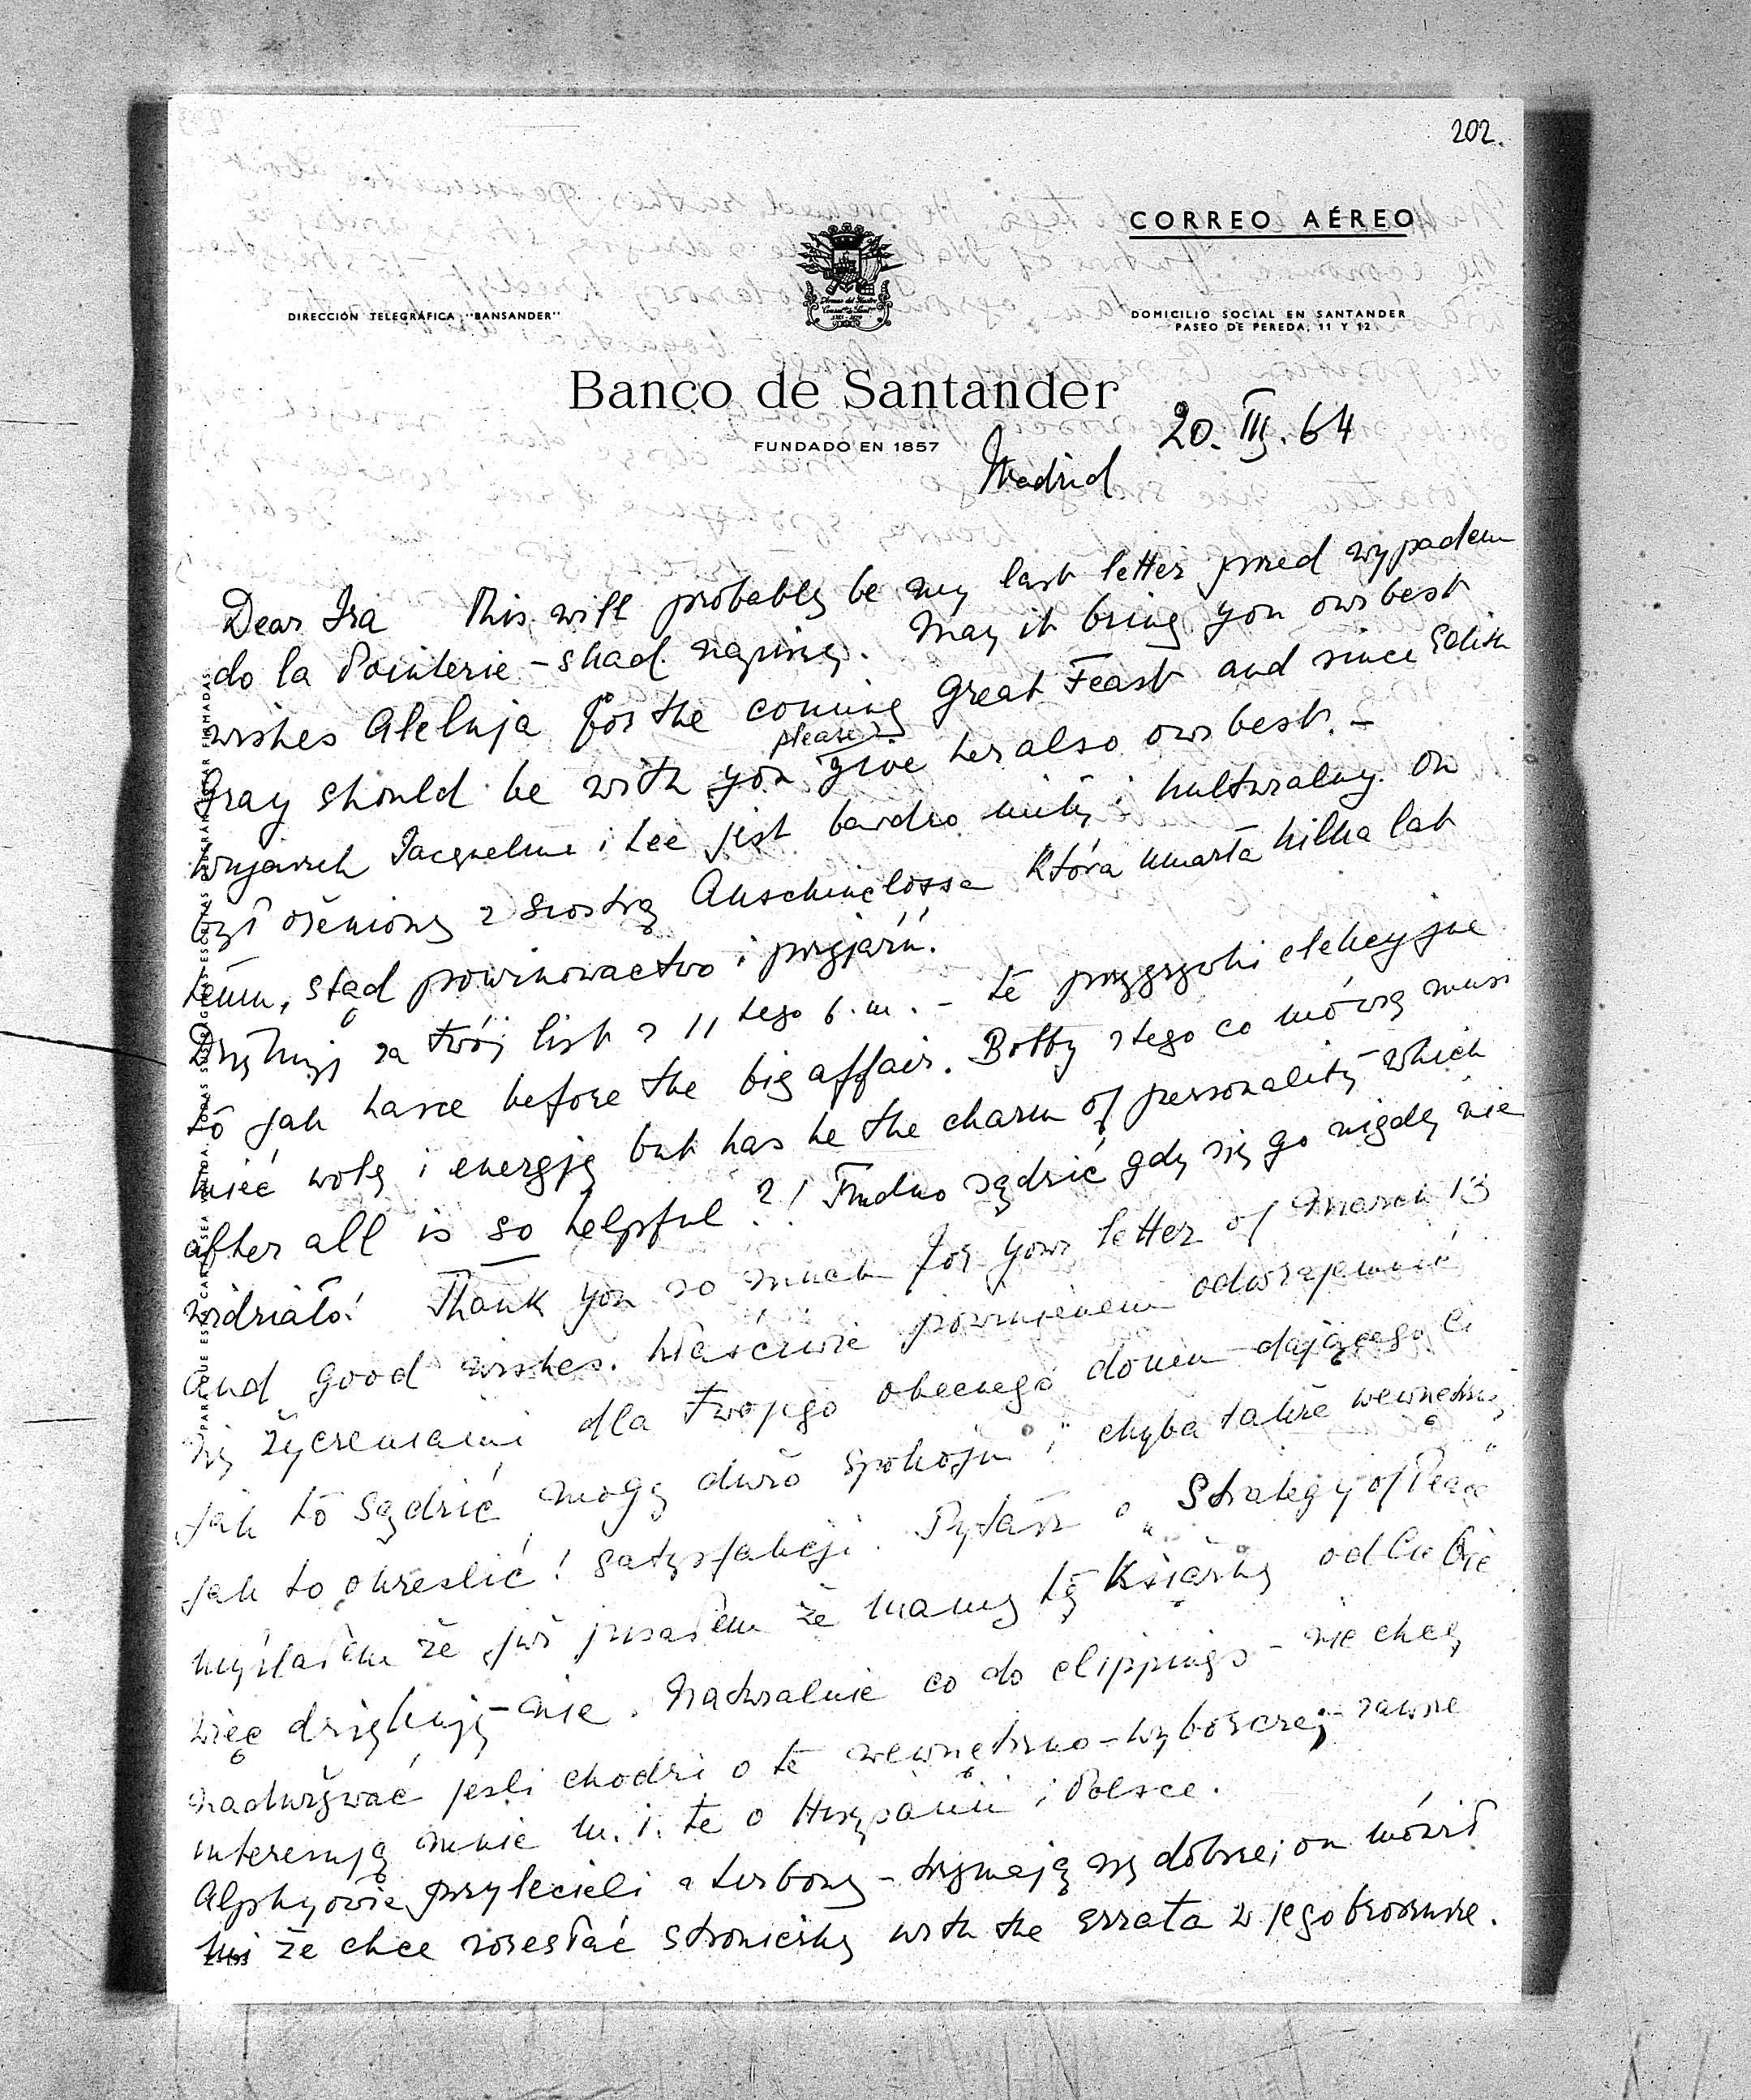 202.
CORREO AÉREO
DIRECCIÓN TELEGRÁFICA: "BANSANDER"
DOMICILIO SOCIAL EN SANTANDER
PASEO DE PEREDA, 11 Y 12
Banco de Santander
FUNDADO EN 1857
20. III. 64
Madrid
Dear Ira This will probably be my last letter przed wypadem
do la Pointerie - skąd napiszę. May it bring you our best
wishes Aleluja for the coming Great Feast and since Edith
Gray should be with you please give her also our best. -
Wujaszek Jacqueline i Lee jest bardzo miły i kulturalny. On
był ożeniony z siostrą Auschinclossa która umarła kilka lat
temu, stąd powinowactwo i przyjaźń.
Dziękuję za twój list z 11 tego b.m. - te przygrywki elekcyjne
to jak harce before the big affair. Bobby z tego co mówią musi
mieć wolę i energję but has he the charm of personality which
after all is so helpful ?! Trudno sądzić gdy się go nigdy nie
widziało! Thank you so much for your letter of March 13
and good wishes. Właściwie powinienem odwzajemnić
się życzeniami dla twojego obecnego domu dającego Ci
jak to sądzić mogę dużo spokoju i chyba także wewnętrznej
jak to określić! satysfakcji. Pytasz o „Strategy of Peace"
myślałem że już pisałem że mamy tę książkę od Ciebie
więc dziękuję - nie. Naturalnie co do clippings - nie chcę
nadużywać jeśli chodzi o te wewnętrzno-wyborczej - zawsze
interesują mnie m.i. te o Hiszpanii i Polsce.
Alphyowie przylecieli z Lizbony - trzymają się dobrze; on mówił
mi że chce rozesłać stroniczkę with the errata w jego broszurze.